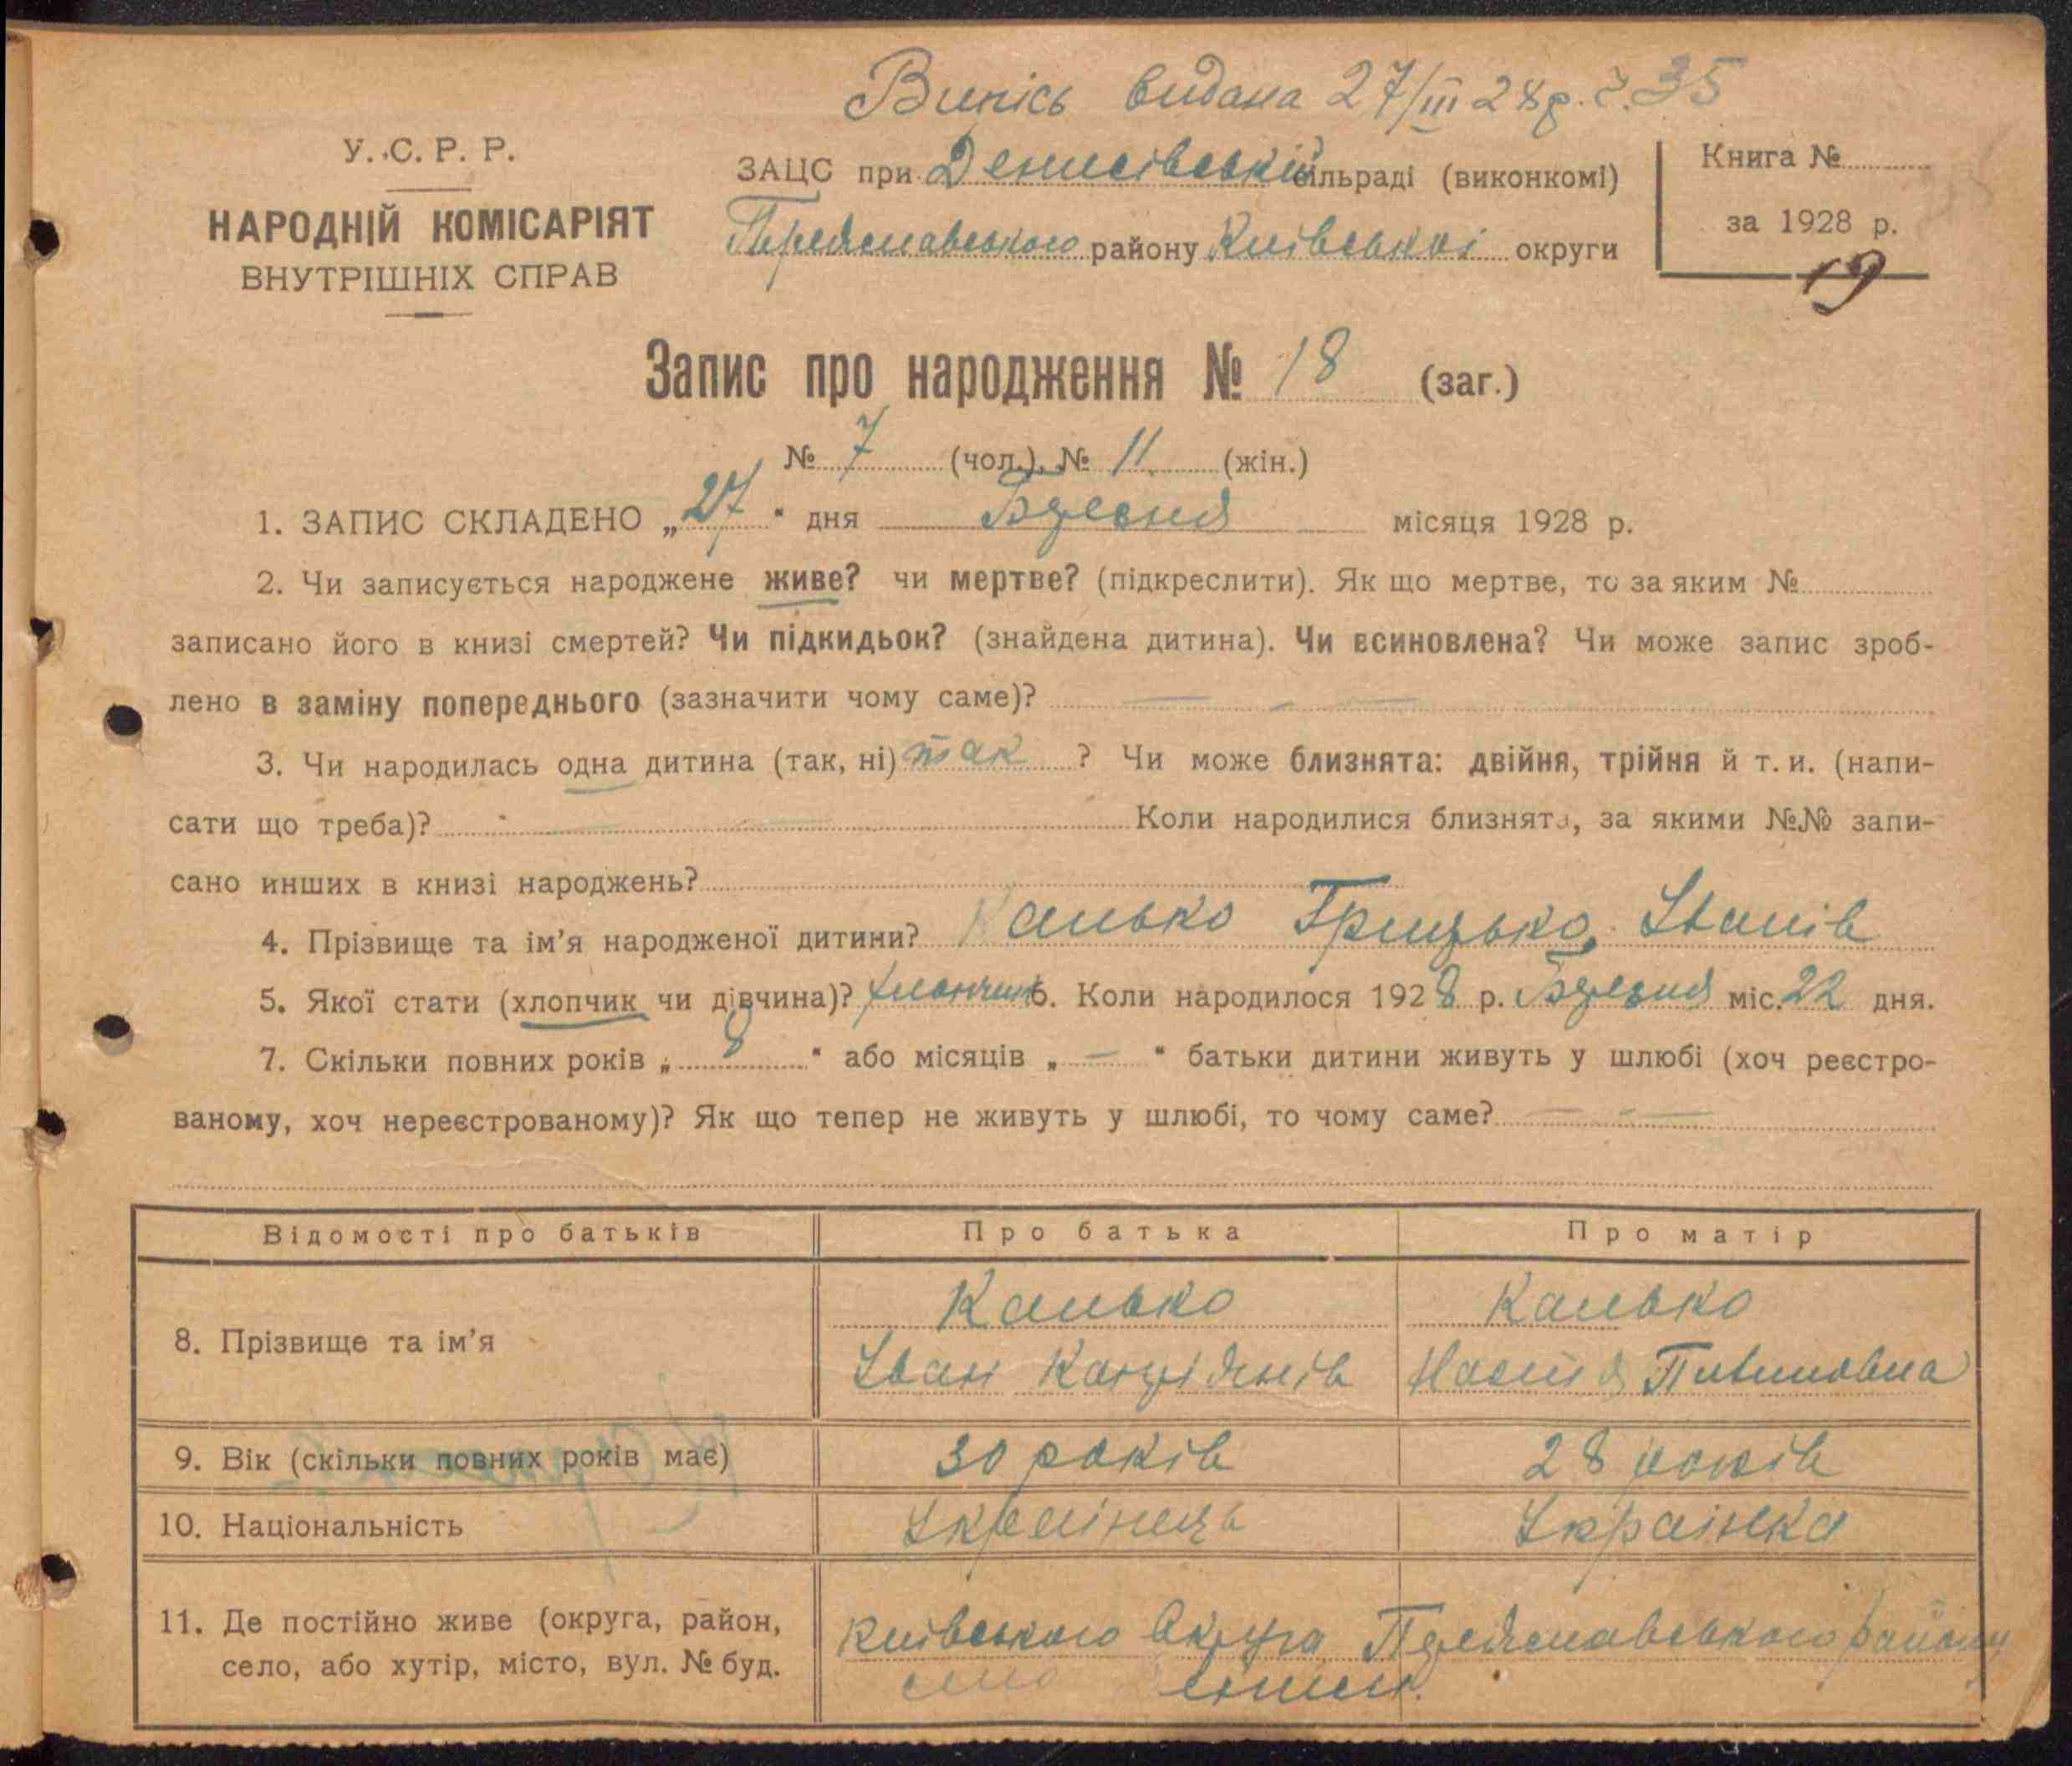 Випісь видана 27/III 28 р. ч. 35
У. С. Р. Р.
НАРОДНІЙ КОМІСАРІЯТ
ВНУТРІШНІХ СПРАВ
ЗАЦС при Денисівській сільраді (виконкомі)
Переяславського району Київської округи
Книга №
за 1928 р.
19
Запис про народження № 18 (заг.)
№ 7 (чол.) № 11 (жін.)
1. ЗАПИС СКЛАДЕНО „27" дня Березня місяця 1928 р.
2. Чи записується народжене живе? чи мертве? (підкреслити). Як що мертве, то за яким №
записано його в книзі смертей? Чи підкидьок? (знайдена дитина). Чи всиновлена? Чи може запис зроб-
лено в заміну попереднього (зазначити чому саме)? — — —
3. Чи народилась одна дитина (так, ні) так ? Чи може близнята: двійня, трійня й т. и. (напи-
сати що треба)? Коли народилися близнята, за якими №№ запи-
сано инших в книзі народжень?
4. Прізвище та ім'я народженої дитини? Канько Грицько Іванів
5. Якої стати (хлопчик чи дівчина)? хлопчик 6. Коли народилося 1928 р. Березня міс. 22 дня.
7. Скільки повних років „ 8 " або місяців „ — " батьки дитини живуть у шлюбі (хоч реєстро-
ваному, хоч нереєстрованому)? Як що тепер не живуть у шлюбі, то чому саме? — — —
Відомості про батьків Про батька Про матір
8. Прізвище та ім'я Канько Канько
Іван Настя
9. Вік (скільки повних років має) 30 років 28 років
10. Національність Українець Українка
11. Де постійно живе (округа, район, Київського Округа Переяславського району
село, або хутір, місто, вул. № буд. село